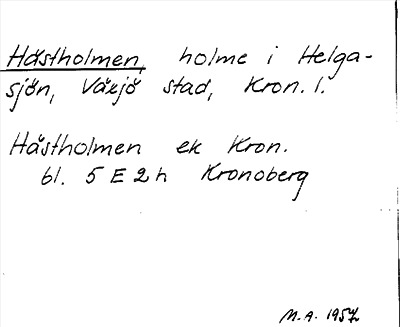 Hästholmen, holme i Helga-
sjön, Växjö stad, Kron. l.
Hästholmen ek Kron.
bl. 5 E 2 h Kronoberg
M.A. 1957